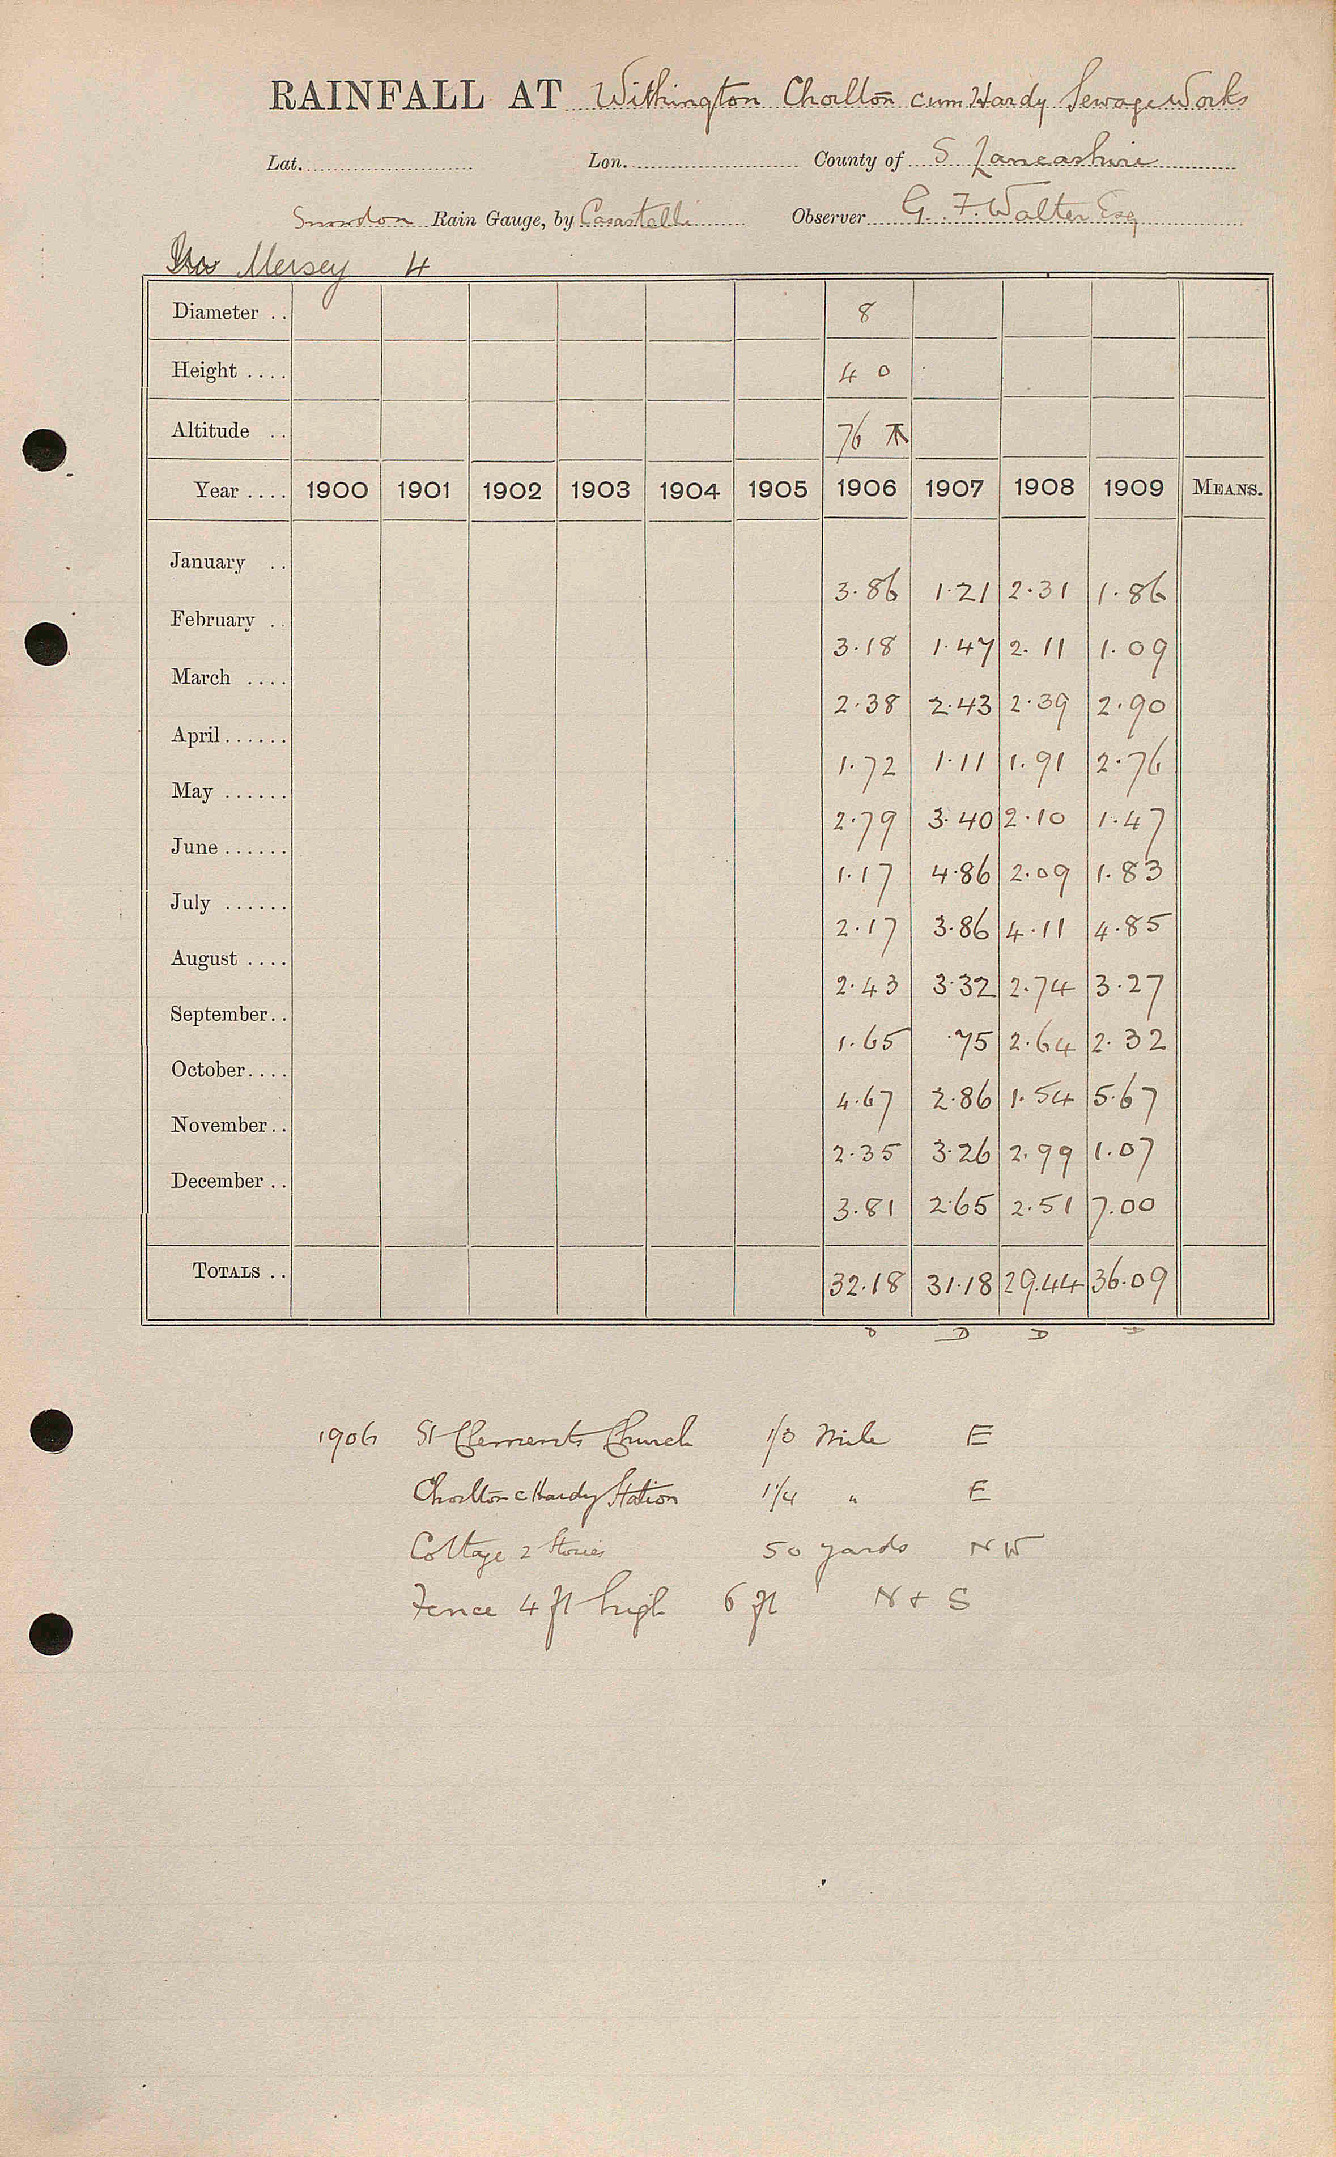 RAINFALL AT Withington Chorlton cum Hardy Sewage Works
Lat. Lon. County of S. Lancashire
Snowdon Rain Gauge, by Casartelli Observer G. F. Walter Esq
Mersey 4
Diameter .. 8
Height .... 4 0
Altitude .. 76
Year .... 1900 1901 1902 1903 1904 1905 1906 1907 1908 1909 MEANS.
January .. 3.86 1.21 2.31 1.86
February .. 3.18 1.47 2.11 1.09
March .... 2.38 2.43 2.39 2.90
April...... 1.72 1.11 1.91 2.76
May ...... 2.79 3.40 2.10 1.47
June ...... 1.17 4.86 2.09 1.83
July ...... 2.17 3.86 4.11 4.85
August .... 2.43 3.32 2.74 3.27
September.. 1.65 .75 2.64 2.32
October.... 4.67 2.86 1.54 5.67
November.. 2.35 3.26 2.99 1.07
December .. 3.81 2.65 2.51 7.00
TOTALS .. 32.18 31.18 29.44 36.09
D D
1906 St Clements Church Mile E
Chorlton c Hardy Station 1 1/4 " E
Cottage 2 Stories 50 yards NW
Fence 4 ft high 6 ft N + S